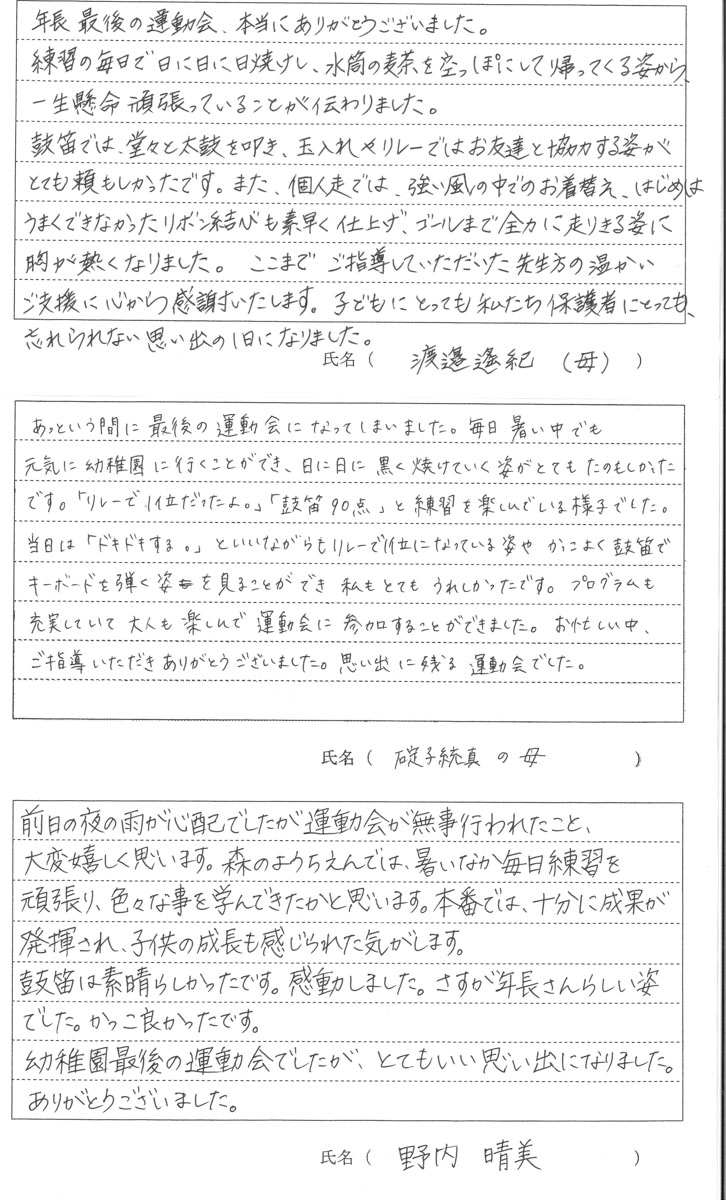 年長 最後の運動会、本当にありがとうございました。
練習の毎日で日に日に日焼けし、水筒の麦茶を空っぽにして帰ってくる姿から、
一生懸命頑張っていることが伝わりました。
鼓笛では、堂々と太鼓を叩き、玉入れやリレーではお友達と協力する姿が
とても頼もしかったです。また、個人走では、強い風の中でのお着替え、はじめは
うまくできなかったリボン結びも素早く仕上げ、ゴールまで全力に走りきる姿に
胸が熱くなりました。 ここまで ご指導していただいた先生方の温かい
ご支援に心から感謝いたします。子どもにとっても私たち保護者にとっても、
忘れられない思い出の1日になりました。
氏名 ( 渡邉遙紀 (母) )
あっという間に最後の運動会になってしまいました。毎日暑い中でも
元気に幼稚園に行くことができ、日に日に黒く焼けていく姿がとてもたのもしかった
です。「リレーで1位だったよ。」「鼓笛90点」と練習を楽しんでいる様子でした。
当日は「ドキドキする。」といいながらもリレーで1位になっている姿や かっこよく鼓笛で
キーボードを弾く姿を見ることができ 私もとても うれしかったです。 プログラムも
充実していて 大人も楽しんで 運動会に参加することができました。 お忙しい中、
ご指導いただきありがとうございました。思い出に残る運動会でした。
氏名 ( 碇子統真 の 母 )
前日の夜の雨が心配でしたが運動会が無事行われたこと、
大変嬉しく思います。森のようちえんでは、暑いなか毎日練習を
頑張り、色々な事を学んできたかと思います。本番では、十分に成果が
発揮され、子供の成長も感じられた気がします。
鼓笛は素晴らしかったです。感動しました。さすが年長さんらしい姿
でした。かっこ良かったです。
幼稚園最後の運動会でしたが、とてもいい思い出になりました。
ありがとうございました。
氏名 ( 野内 晴美 )